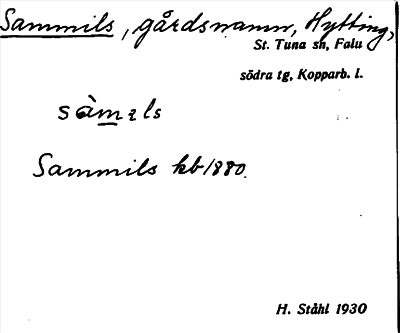 Sammils, gårdsnamn, Hytting,
St. Tuna sn, Falu
södra tg, Kopparb. l.
sàmɩls
Sammils kb 1880.
H. Ståhl 1930